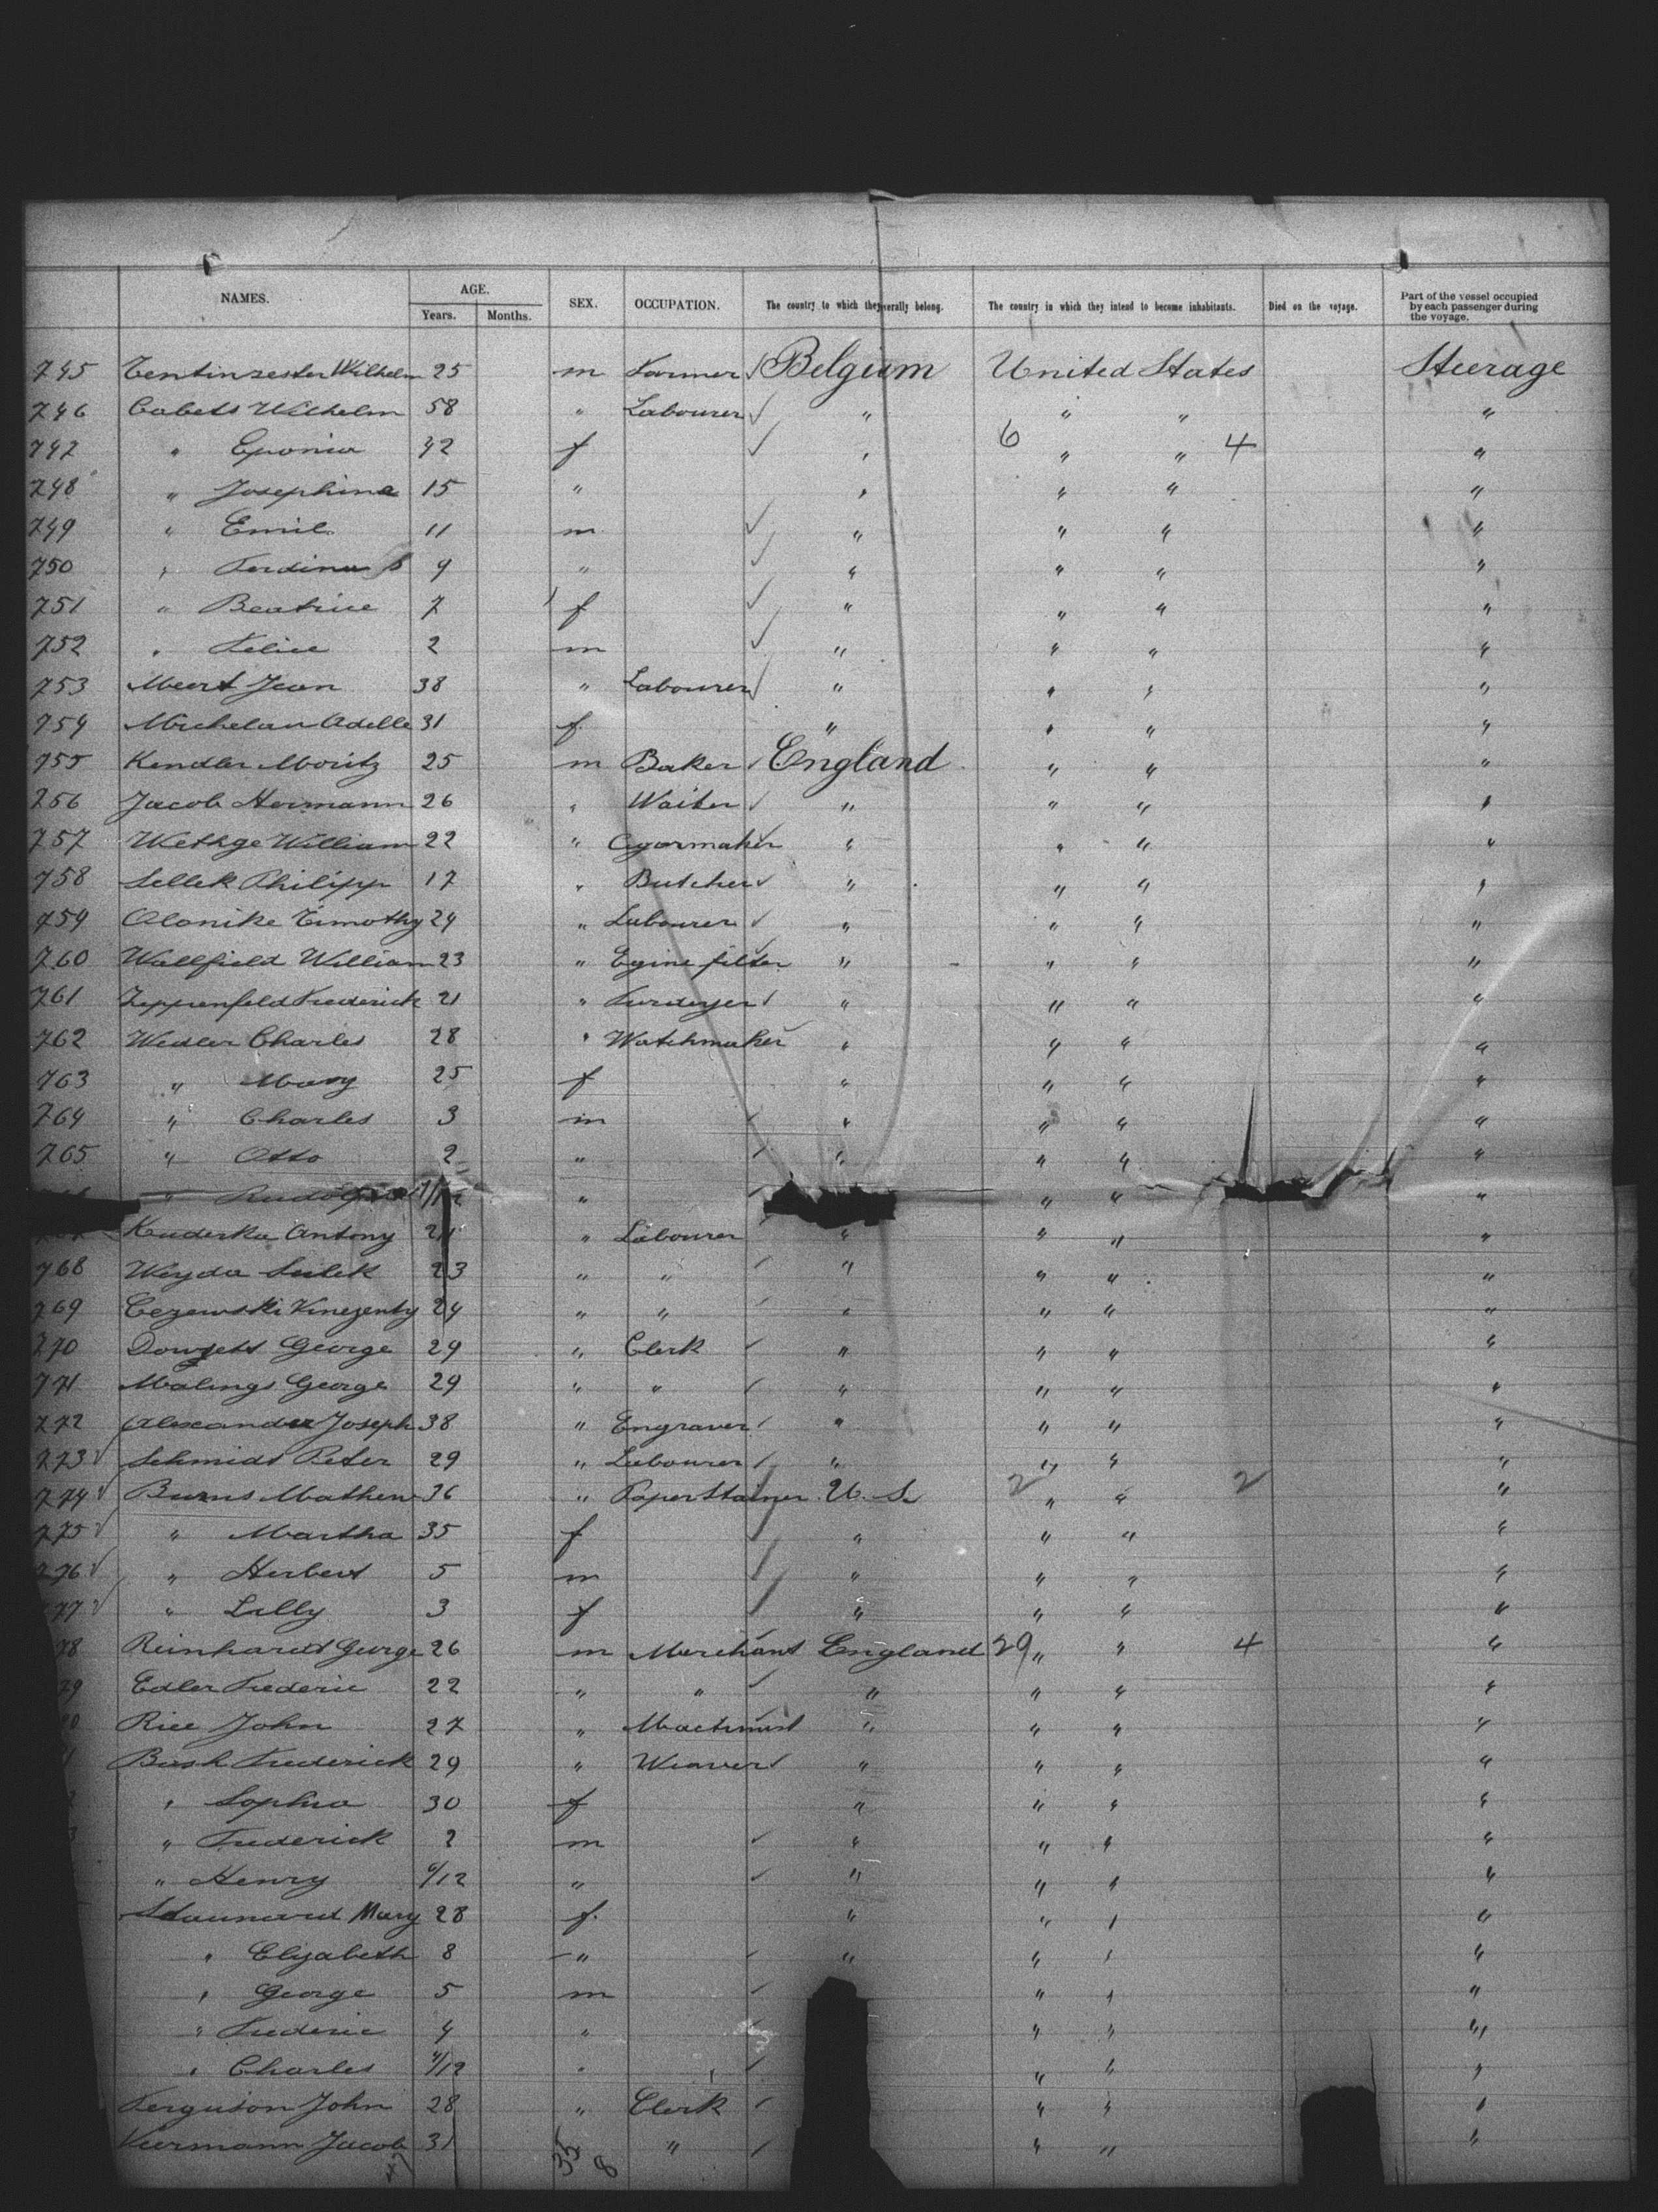 NAMES. AGE. SEX. OCCUPATION. The country to which they severally belong. The country in which they intend to become inhabitants. Died on the voyage. Part of the vessel occupied by each passenger during the voyage.
Years. Months.
745 Wilhelm 25 m Farmer Belgium United States Steerage
746 Cabets Wilhelm 58 " Labourer " " " "
747 " Eponia 42 f " 6 " " 4 "
748 " Josephina 15 " " " " "
749 " Emil 11 m " " " "
750 " 9 " " " " "
751 " Beatrice 7 f " " " "
752 " Felice 2 m " " " "
753 Meert Jean 38 " Labourer " " " "
754 Michelau Adelle 31 f " " " "
755 Kendler Moritz 25 m Baker England " " "
756 Jacob Hermann 26 " Waiter " " " "
757 Wethge William 22 " Cigarmaker " " " "
758 Sellek Philipp 17 " Butcher " " " "
759 Alonike Timothy 24 " Labourer " " " "
760 Wallfield William 23 " Egine fitter " " " "
761 Zeppenfeld Frederick 21 " " " " "
762 Wedler Charles 28 " Watchmaker " " " "
763 " Mary 25 f " " " "
764 " Charles 3 m " " " "
765 " Otto 2 " " " " "
" Rudolf " " " "
Kuderka Antony 21 " Labourer " " " "
768 Weyda Sulek 23 " " " " " "
769 24 " " " " " "
770 Dowsett George 29 " Clerk " " " "
771 Malings George 29 " " " " " "
772 Alexander Joseph 38 " Engraver " " " "
773 Schmidt Peter 29 " Labourer " " " "
774 Burns Mathew 36 " Paper Stainer U. S. 2 " " 2 "
775 " Martha 35 f " " " "
776 " Herbert 5 m " " " "
77 " Lilly 3 f " " " "
78 Reinhardt George 26 m Merchant England 29 " " 4 "
79 Edler Frederic 22 " " " " " "
80 Rice John 27 " Machinist " " " "
Bash Frederick 29 " Weaver " " " "
" Sophia 30 f " " " "
" Frederick 2 m " " " "
" Henry " " " " "
Mary 28 f " " " "
" Elizabeth 8 " " " " "
" George 5 m " " "
" Frederic 4 " " " "
" Charles " " " "
Ferguson John 28 " Clerk " " "
Jacob 31 " " " "
35 8